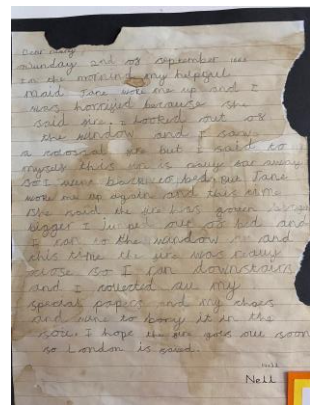 Dear diary
Sunday 2nd of September 1666
In the morning my helpful
maid Jane woke me up and I
was horrified because she
said fire. I looked out of
the window and I saw
a colossal fire but I said to
myself this is only far away
so I went back to bed. Jane
woke me up again and this time
she said the fire has grown
bigger I jumped out of bed and
I ran to the window and
this time the fire was really
close so I ran downstairs
and I collected all my
special papers and my
and to bury it in the
soil. I hope the fire goes out soon
so London is
Neil